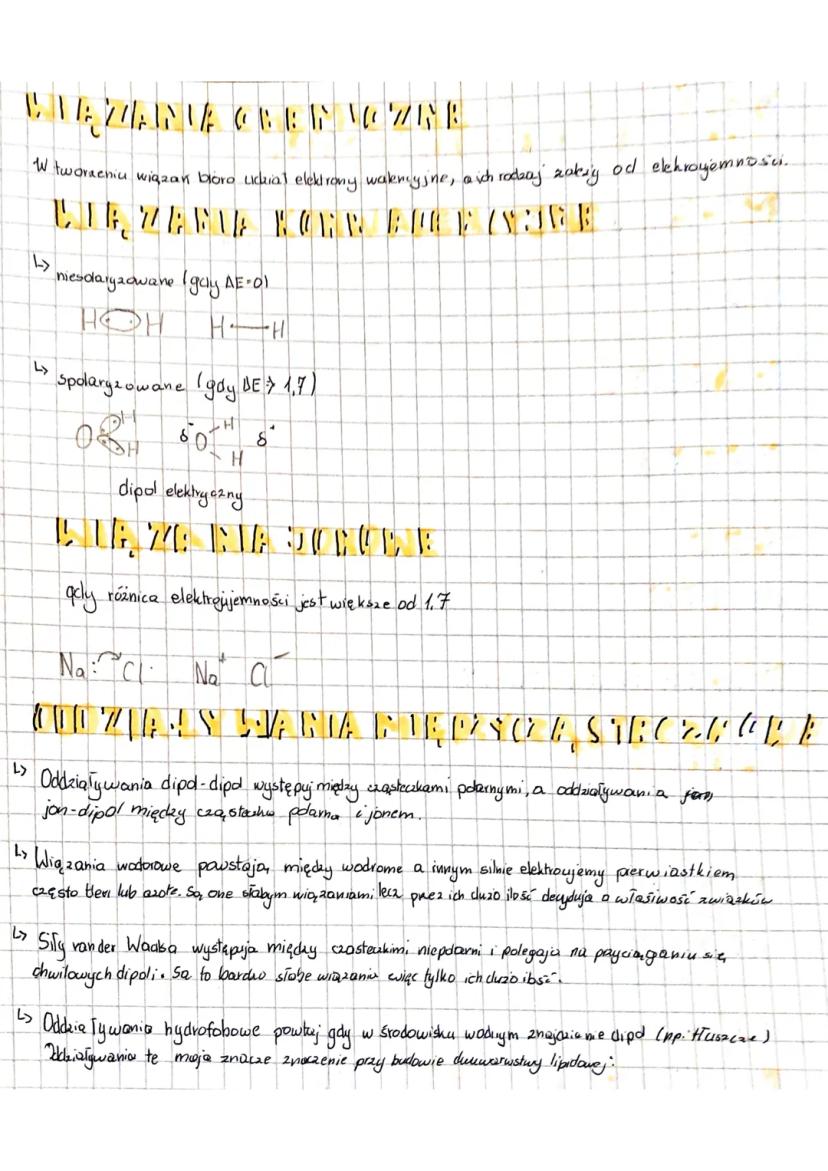 WIĄZANIA CHEMICZNE
W tworzeniu wiązań biorą udział elektrony walencyjne, a ich rodzaj zależy od elektroujemności.
WIĄZANIA KOWALENCYJNE
↳ niespolaryzowane (gdy ΔE=0)
H H H—H
↳ spolaryzowane (gdy ΔE > 1,7)
O H H δ⁻ O H H δ⁺
dipol elektryczny
WIĄZANIA JONOWE
gdy różnica elektroujemności jest większe od 1,7
Na: Cl· Na⁺ Cl⁻
ODDZIAŁYWANIA MIĘDZYCZĄSTECZKOWE
↳ Oddziaływania dipol-dipol występuj między cząsteczkami polarnymi, a oddziaływania
jon-dipol między cząstecka polarna i jonem.
↳ Wiązania wodorowe powstają między wodrome a innym silnie elektroujemy pierwiastkiem
często tlen lub azote. Są one słabym wiązaniami, lecz przez ich dużo ilość decydują o właściwość związków
↳ Siły van der Waalsa występuja między czasteczkimi niepolarni i polegają na przyciąganiu się
chwilowych dipoli. Sa to bardzo słabe wiązania więc tylko ich dużo ilość.
↳ Oddziaływania hydrofobowe gdy w środowisku wodnym nie dipol (np. tłuszcze)
Oddziaływania te maja znacze znaczenie przy budowie dwuwarstwy lipidowej: